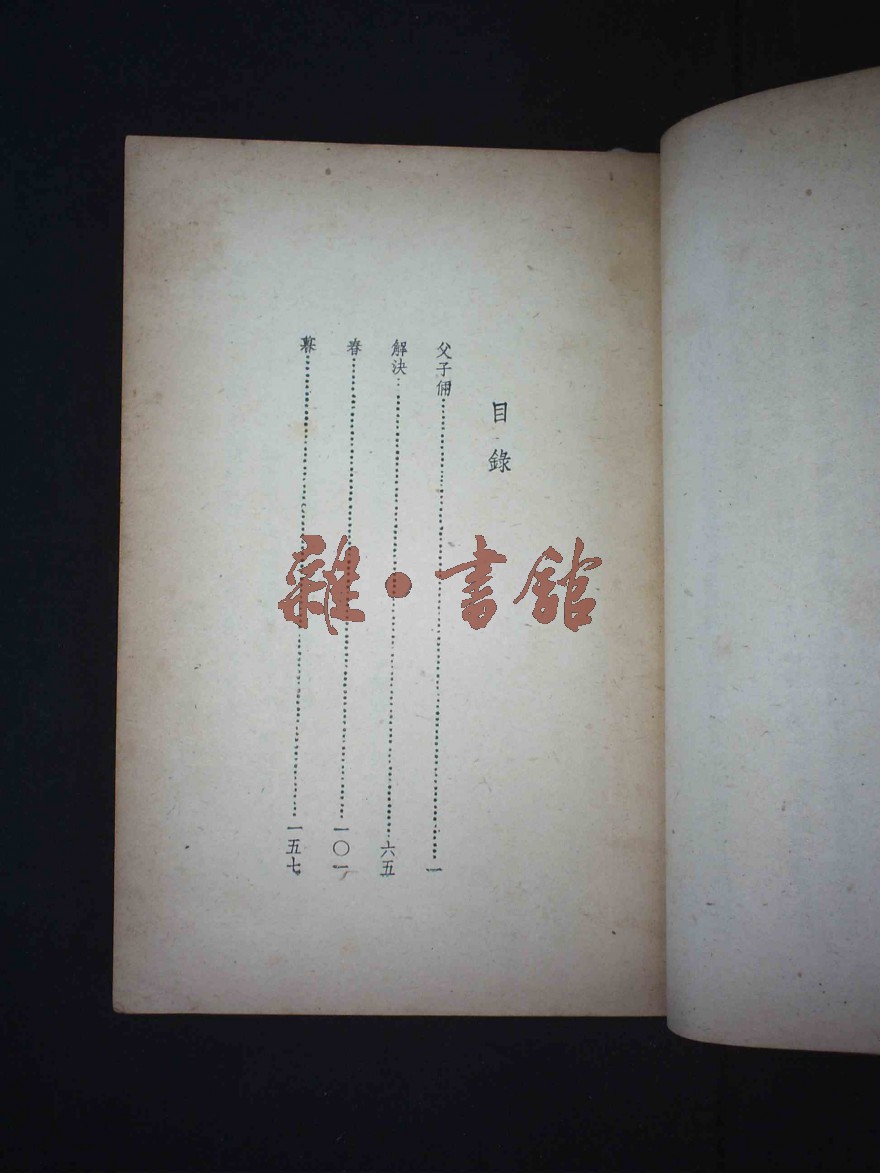 目錄
父子倆……一
解決……六五
春……一〇一
暮……一五七
雜·書館